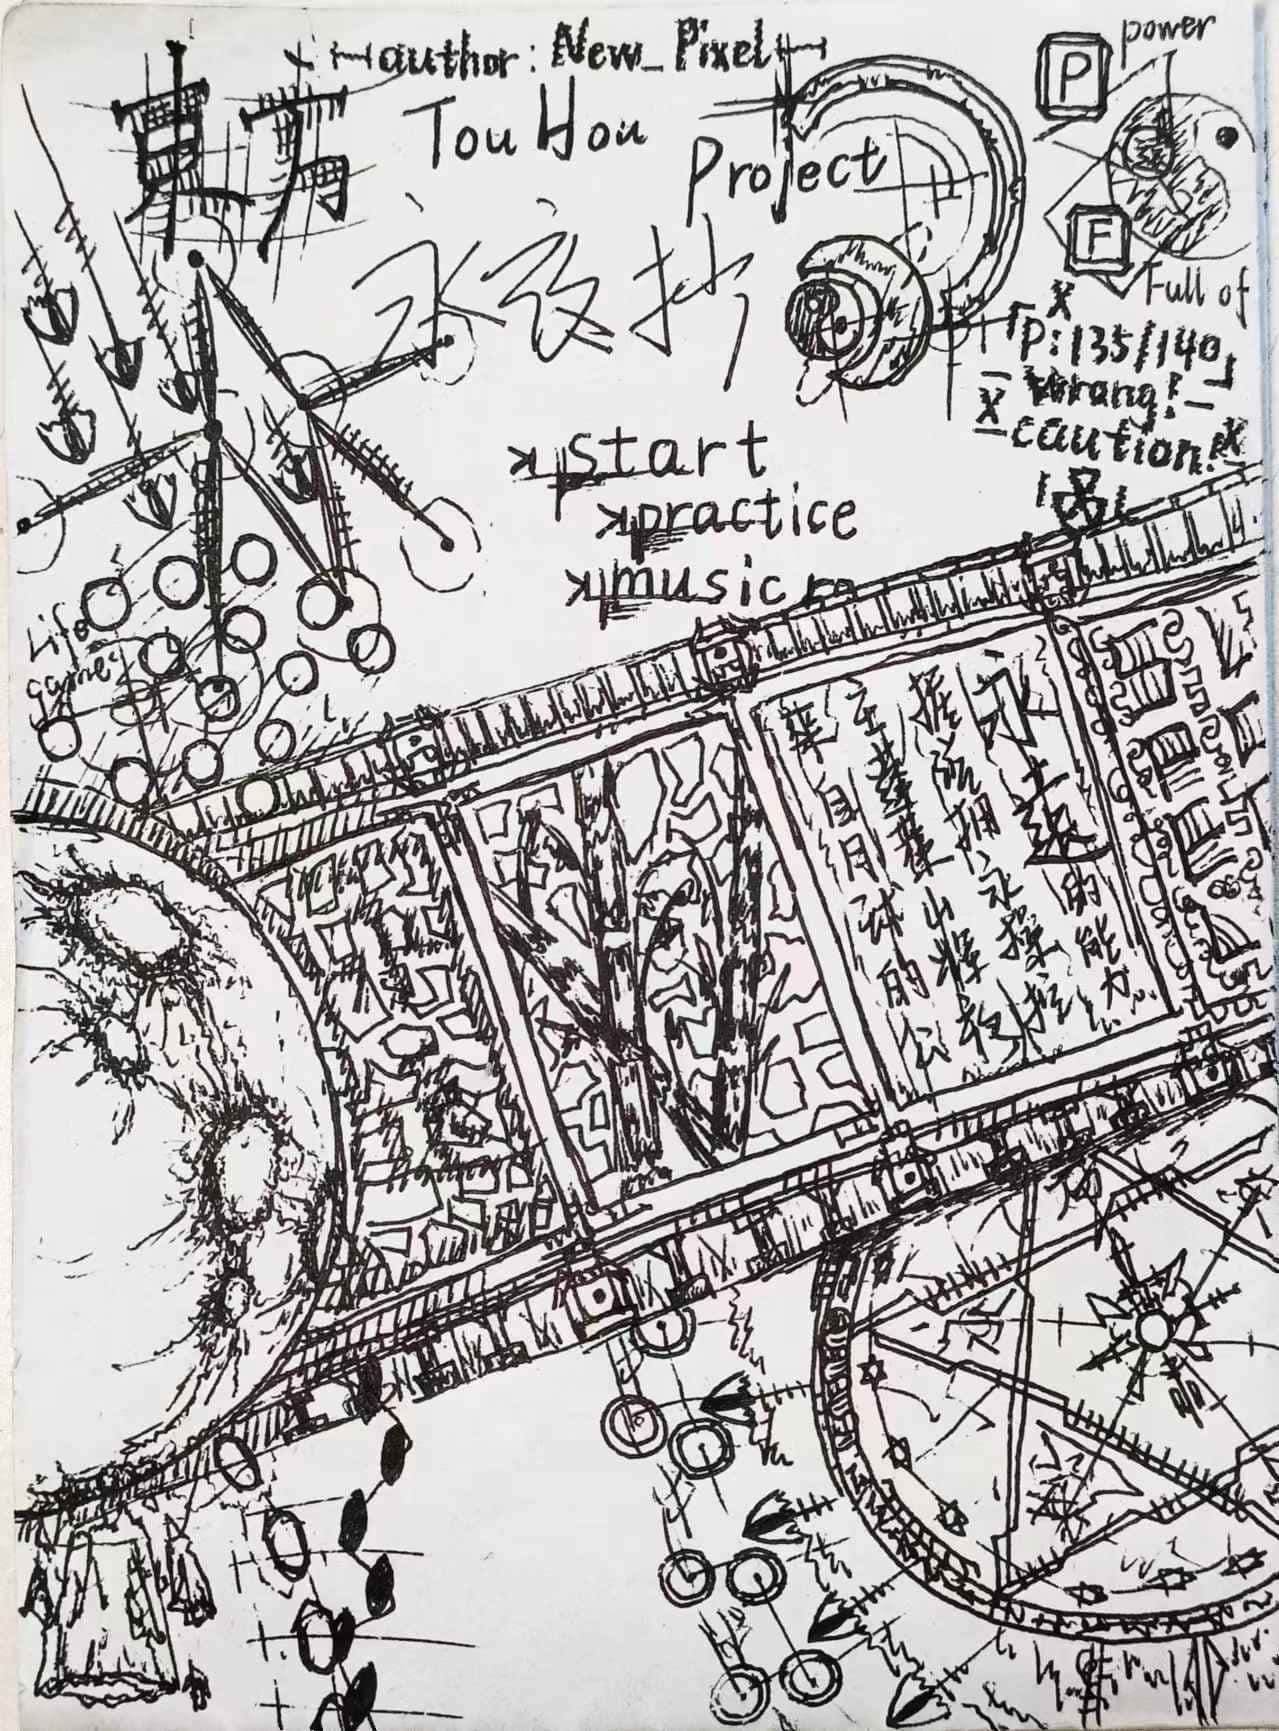 author: New_Pixel
東方
TouHou
Project
永夜抄
power
P
F
Full of
「P:135/140」
Wrang!
caution!
start
practice
music ro
Life
game
自月球的公
主蓬莱山辉夜
永遠的能力